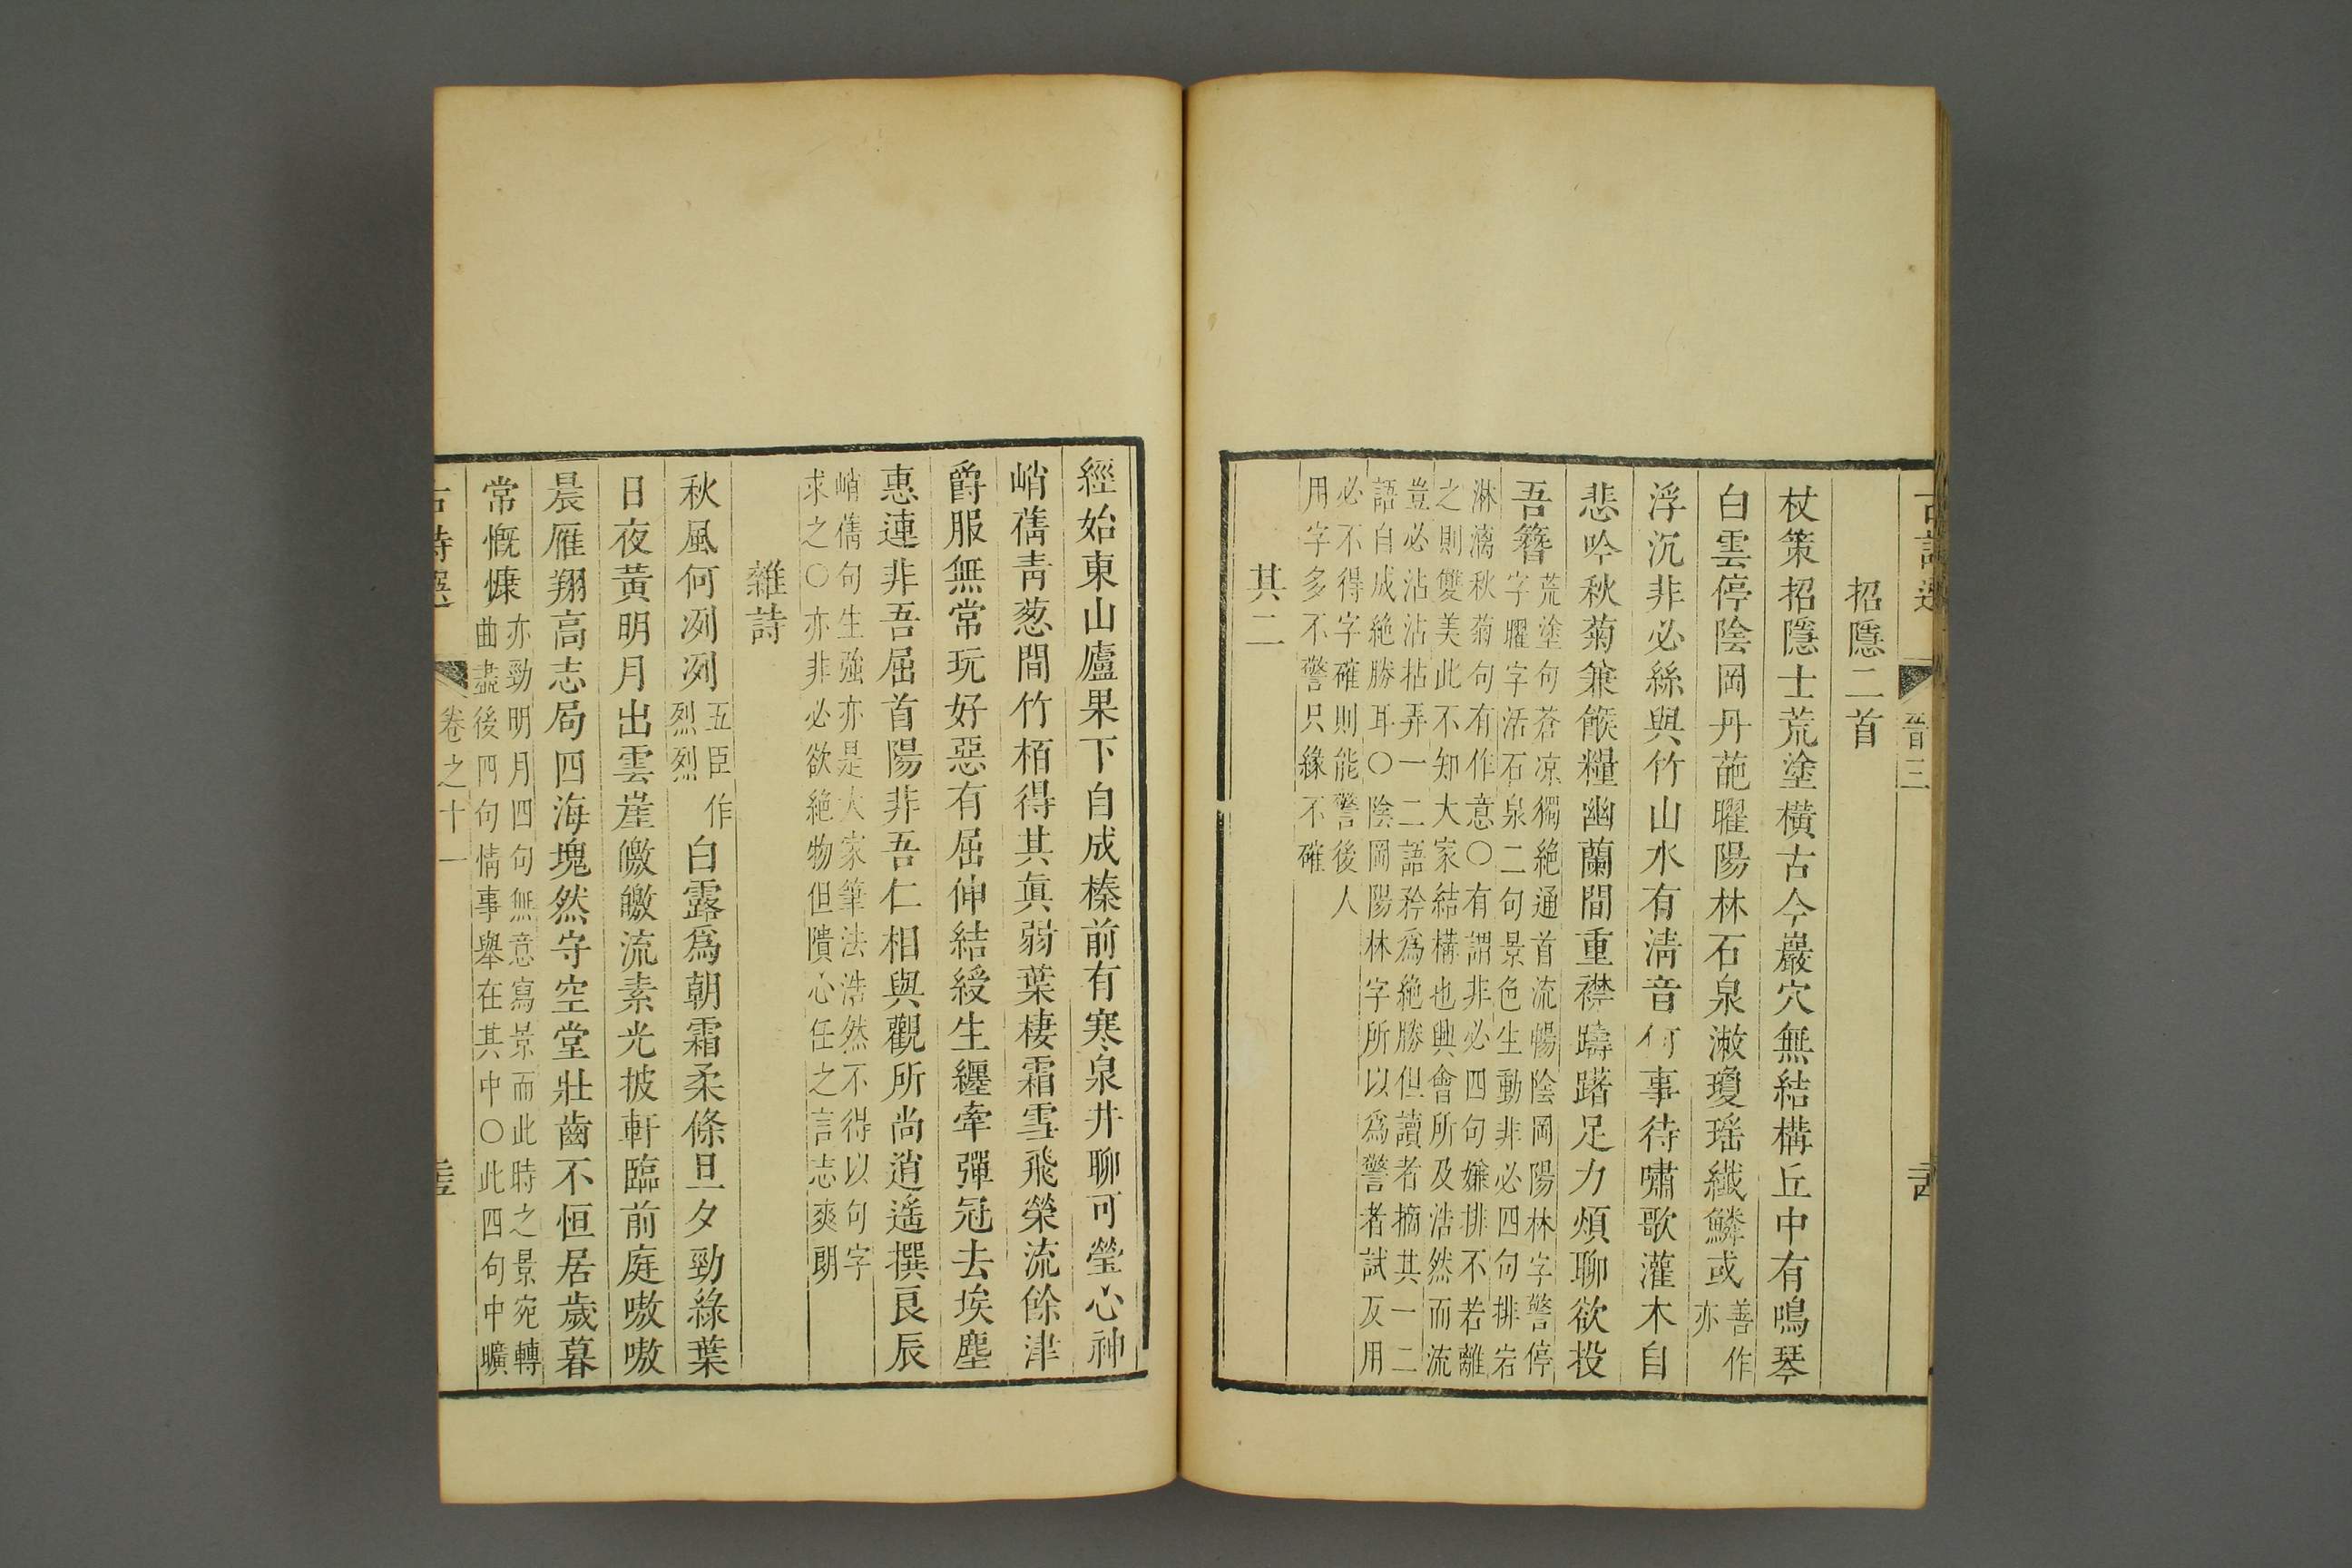 晉三
招隱二首
杖策招隱士荒塗橫古今巖穴無結構丘中有鳴琴
白雲停陰岡丹葩曜陽林石泉漱瓊瑶纖鱗或
善作
亦
浮沉非必絲與竹山水有清音何事待嘯歌灌木自
悲吟秋菊兼餱糧幽蘭間重襟躊躇足力煩聊欲投
吾簪
荒塗句蒼凉獨絶通首流暢陰岡陽林字警停
字曜字活石泉二句景色生動非必四句排宕
淋漓秋菊句有作意〇有謂非必四句嫌排不若離
之則雙美此不知大家結構也興會所及浩然而流
豈必沾沾拈弄一二語矜爲絶勝但讀者摘其一二
語自成絶勝耳〇陰岡陽林字所以爲警者試反用
必不得字確則能警後人
用字多不警只緣不確
其二
經始東山廬果下自成榛前有寒泉井聊可瑩心神
峭蒨青葱間竹栢得其眞弱葉棲霜雪飛榮流餘津
爵服無常玩好惡有屈伸結綬生纏牽彈冠去埃塵
惠連非吾屈首陽非吾仁相與觀所尚逍遙撰良辰
峭蒨句生強亦是大家筆法浩然不得以句字
求之〇亦非必欲絶物但隤心任之言志爽朗
雜詩
秋風何冽冽
五臣作
烈烈
白露爲朝霜柔條旦夕勁綠葉
日夜黃明月出雲崖皦皦流素光披軒臨前庭嗷嗷
晨雁翔高志局四海塊然守空堂壯齒不恒居歲暮
常慨慷
亦勁明月四句無意寫景而此時之景宛轉
曲盡後四句情事舉在其中〇此四句中曠
卷之十一